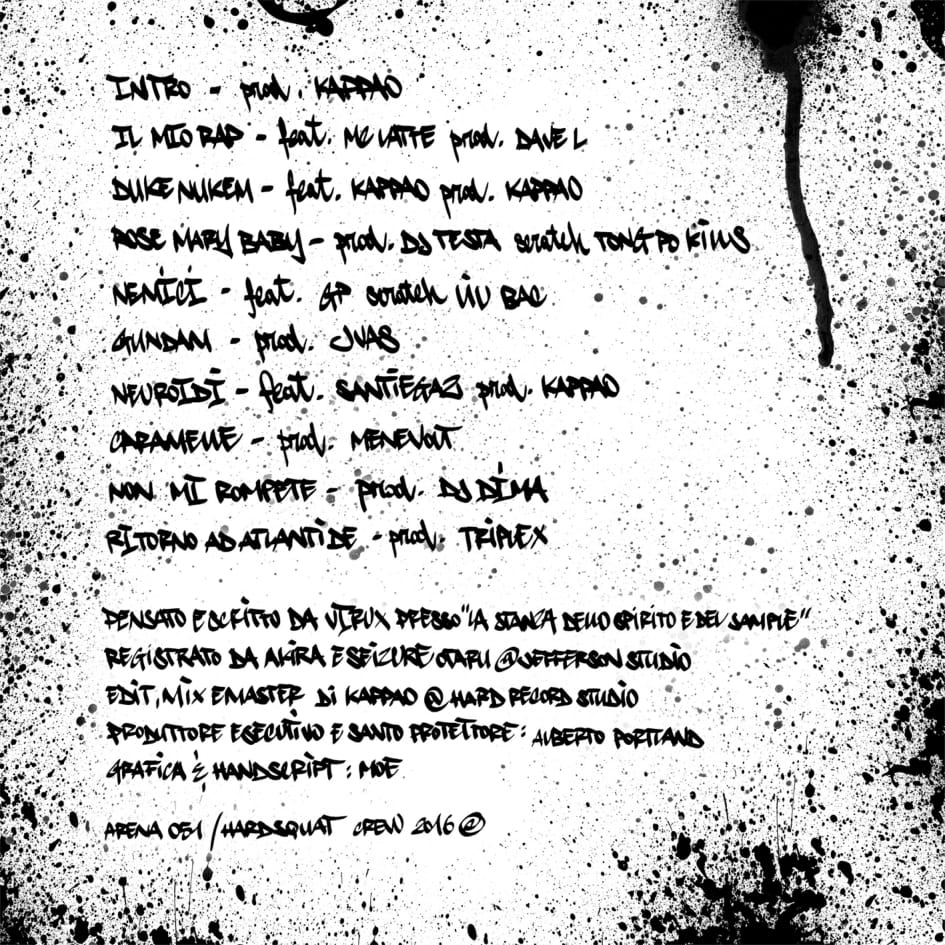 INTRO - prod. KAPPAO
IL MIO RAP - feat. MC LATTE prod. DAVE L
DUKE NUKEM - feat. KAPPAO prod. KAPPAO
ROSE MARY BABY - prod. DJ TESTA scratch TONG PO KILLS
NEMICI - feat. GP scratch LIU BAC
GUNDAM - prod. JVAS
NEUROIDI - feat. SANTIEGAZ prod. KAPPAO
CARAMELLE - prod. MENEVOLT
NON MI ROMPETE - prod. DJ DIMA
RITORNO AD ATLANTIDE - prod. TRIPLEX
PENSATO E SCRITTO DA VIRUX PRESSO "LA STANZA DELLO SPIRITO E DEL SAMPLE"
REGISTRATO DA AKIRA E SEIZURE OTARU @ JEFFERSON STUDIO
EDIT, MIX E MASTER DI KAPPAO @ HARD RECORD STUDIO
PRODUTTORE ESECUTIVO E SANTO PROTETTORE: ALBERTO PORTLAND
GRAFICA & HANDSCRIPT: MOE
ARENA 051 / HARDSQUAT CREW 2016 ©